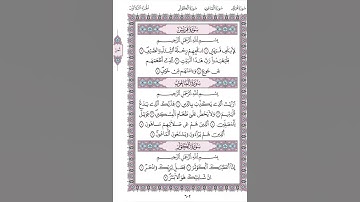 الجزء الثلاثون سورة الكوثر سورة الماعون سورة قريش
سُورَةُ قُرَيْشٍ
بِسْمِ اللَّهِ الرَّحْمَٰنِ الرَّحِيمِ
لِإِيلَٰفِ قُرَيْشٍ ١ إِۦلَٰفِهِمْ رِحْلَةَ ٱلشِّتَآءِ وَٱلصَّيْفِ ٢
فَلْيَعْبُدُوا۟ رَبَّ هَٰذَا ٱلْبَيْتِ ٣ ٱلَّذِىٓ أَطْعَمَهُم
مِّن جُوعٍ وَءَامَنَهُم مِّنْ خَوْفٍۭ ٤
سُورَةُ الْمَاعُونِ
بِسْمِ اللَّهِ الرَّحْمَٰنِ الرَّحِيمِ
أَرَءَيْتَ ٱلَّذِى يُكَذِّبُ بِٱلدِّينِ ١ فَذَٰلِكَ ٱلَّذِى يَدُعُّ
ٱلْيَتِيمَ ٢ وَلَا يَحُضُّ عَلَىٰ طَعَامِ ٱلْمِسْكِينِ ٣ فَوَيْلٌ
لِّلْمُصَلِّينَ ٤ ٱلَّذِينَ هُمْ عَن صَلَاتِهِمْ سَاهُونَ ٥
ٱلَّذِينَ هُمْ يُرَآءُونَ ٦ وَيَمْنَعُونَ ٱلْمَاعُونَ ٧
سُورَةُ الْكَوْثَرِ
بِسْمِ اللَّهِ الرَّحْمَٰنِ الرَّحِيمِ
إِنَّآ أَعْطَيْنَٰكَ ٱلْكَوْثَرَ ١ فَصَلِّ لِرَبِّكَ وَٱنْحَرْ ٢
إِنَّ شَانِئَكَ هُوَ ٱلْأَبْتَرُ ٣
٦٠٢